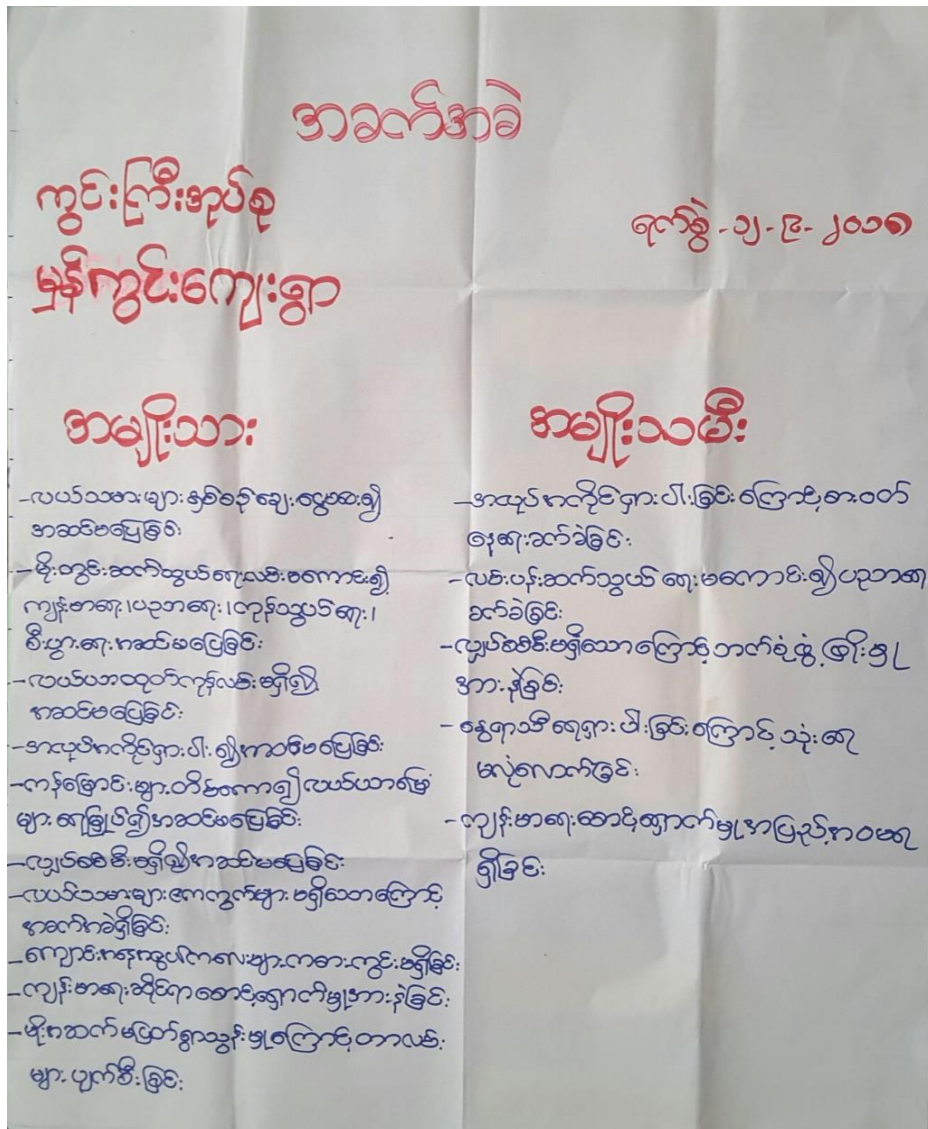 အခက်အခဲ
ကွင်းကြီးအုပ်စု
မှန်ကွင်းကျေးရွာ
ရက်စွဲ - ၁၂ - ၉ - ၂၀၁၈
အမျိုးသား
- လယ်သမားများနှစ်စဉ်ချေးငွေမဆး၍
အဆင်မပြေခြင်း
- မိုးတွင်းဆက်သွယ်ရေးလမ်းမကောင်း၍
ကျန်းမာရေး၊ ပညာရေး၊ ကုန်သွယ်ရေး၊
စီးပွားရေးအဆင်မပြေခြင်း
- လယ်ယာထုတ်ကုန်လမ်းမရှိ၍
အဆင်မပြေခြင်း
- အလုပ်အကိုင်ရှားပါး၍အဆင်မပြေခြင်း
- ကန်မြောင်းများတိမ်ကော၍လယ်ယာမြေ
များရေမြုပ်၍အဆင်မပြေခြင်း
- လျှပ်စစ်မီးမရှိ၍အဆင်မပြေခြင်း
- လယ်သမားများကွက်များမရှိသောကြောင့်
အခက်အခဲရှိခြင်း
- ကျောင်းနေအရွယ်ကလေးများကစားကွင်းမရှိခြင်း
- ကျန်းမာရေးဆိုင်ရာစောင့်ရှောက်မှုအားနဲခြင်း
- မိုးအဆက်မပြတ်ရွာသွန်းမှုကြောင့်တာလမ်း
များပျက်စီးခြင်း
အမျိုးသမီး
- အလုပ်အကိုင်ရှားပါးခြင်းကြောင့်စားဝတ်
နေရေးခက်ခဲခြင်း
- လမ်းပန်းဆက်သွယ်ရေးမကောင်း၍ပညာရေး
ခက်ခဲခြင်း
- လျှပ်စစ်မီးမရှိသောကြောင့်ဘက်စုံဖွံ့ဖြိုးမှု
အားနဲခြင်း
- နွေရာသီရေရှားပါးခြင်းကြောင့်သုံးရေ
မလုံလောက်ခြင်း
- ကျန်းမာရေးစောင့်ရှောက်မှုအပြည့်အဝမရ
ရှိခြင်း